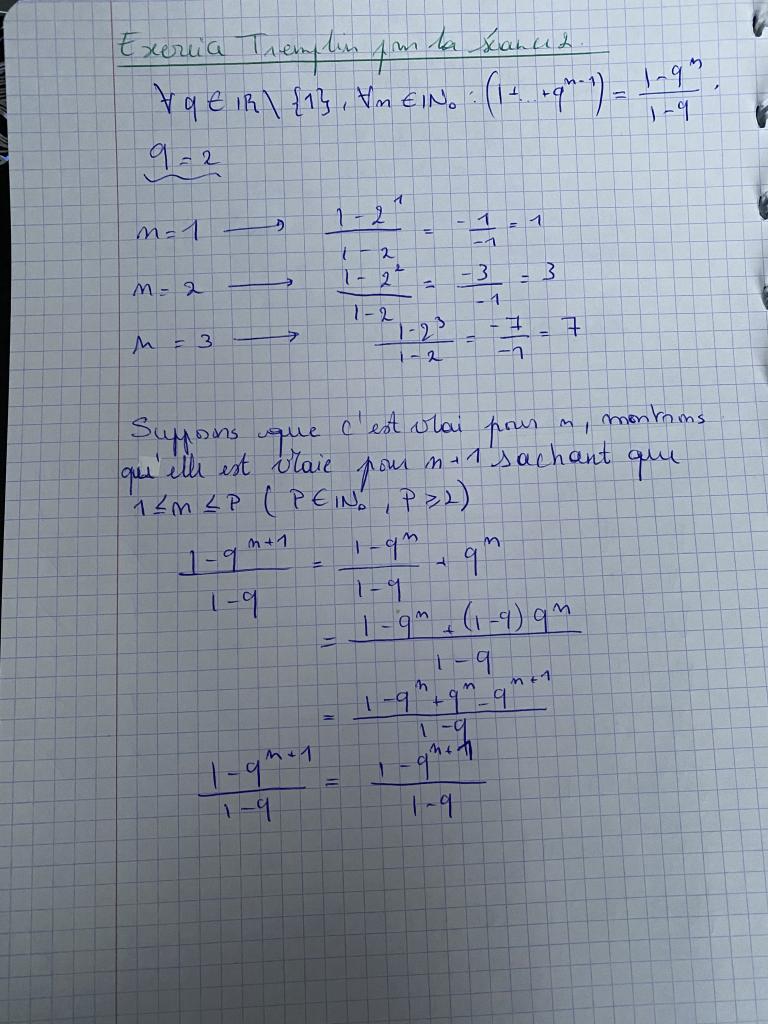 Exercice Tremplin pour la séance 2.
∀ q ∈ IR \ {1}, ∀n ∈ IN₀ : (1+...+q^{n-1}) = \frac{1-q^n}{1-q}.
q = 2
n = 1 ⟶ \frac{1-2^1}{1-2} = \frac{-1}{-1} = 1
n = 2 ⟶ \frac{1-2^2}{1-2} = \frac{-3}{-1} = 3
n = 3 ⟶ \frac{1-2^3}{1-2} = \frac{-7}{-1} = 7
Suppons que c'est vrai pour n, montrons
qu'elle est vraie pour n+1 sachant que
1 ≤ n ≤ P ( P ∈ IN₀ , P ≥ 2)
\frac{1-q^{n+1}}{1-q} = \frac{1-q^n}{1-q} + q^n
= \frac{1-q^n + (1-q) q^n}{1-q}
= \frac{1-q^n + q^n - q^{n+1}}{1-q}
\frac{1-q^{n+1}}{1-q} = \frac{1-q^{n+1}}{1-q}